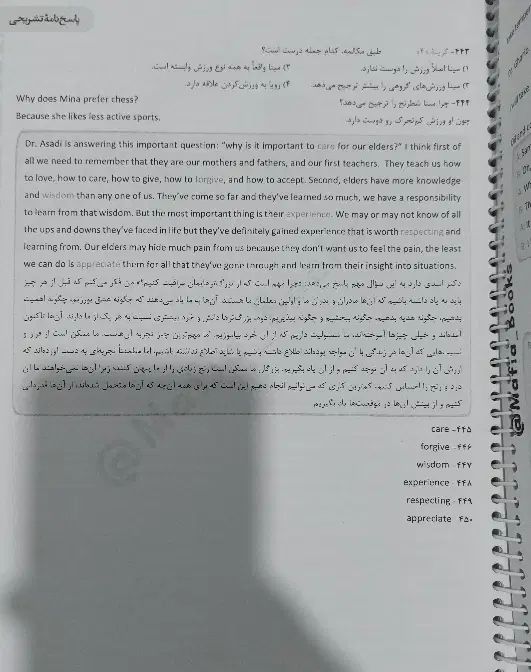 پاسخ‌نامهٔ تشریحی
۴۴۳- گزینهٔ ۴ طبق مکالمه، کدام جمله درست است؟
۱) مینا اصلاً ورزش را دوست ندارد. ۳) مینا واقعاً به همه نوع ورزش وابسته است.
۲) مینا ورزش‌های گروهی را بیشتر ترجیح می‌دهد. ۴) رویا به ورزش‌کردن علاقه دارد.
۴۴۴- چرا مینا شطرنج را ترجیح می‌دهد؟
Why does Mina prefer chess?
چون او ورزش کم‌تحرک رو دوست دارد.
Because she likes less active sports.
Dr. Asadi is answering this important question: "why is it important to care for our elders?" I think first of
all we need to remember that they are our mothers and fathers, and our first teachers. They teach us how
to love, how to care, how to give, how to forgive, and how to accept. Second, elders have more knowledge
and wisdom than any one of us. They've come so far and they've learned so much, we have a responsibility
to learn from that wisdom. But the most important thing is their experience. We may or may not know of all
the ups and downs they've faced in life but they've definitely gained experience that is worth respecting and
learning from. Our elders may hide much pain from us because they don't want us to feel the pain, the least
we can do is appreciate them for all that they've gone through and learn from their insight into situations.
دکتر اسدی دارد به این سؤال مهم پاسخ می‌دهد: «چرا مهم است که از بزرگ‌ترهایمان مراقبت کنیم؟» من فکر می‌کنم که قبل از هر چیز
باید به یاد داشته باشیم که آن‌ها مادران و پدران ما و اولین معلمان ما هستند. آن‌ها به ما یاد می‌دهند که چگونه عشق بورزیم، چگونه اهمیت
بدهیم، چگونه هدیه بدهیم، چگونه ببخشیم و چگونه بپذیریم. دوم، بزرگ‌ترها دانش و خرد بیشتری نسبت به هر یک از ما دارند. آن‌ها تاکنون
آمده‌اند و خیلی چیزها آموخته‌اند، ما مسئولیت داریم که از آن خرد بیاموزیم. اما مهم‌ترین چیز تجربه آن‌هاست. ما ممکن است از فراز و
نشیب‌هایی که آن‌ها در زندگی با آن مواجه بوده‌اند اطلاع داشته باشیم یا شاید اطلاع نداشته باشیم، اما مطمئناً تجربه‌ای به دست آورده‌اند که
ارزش آن را دارد که به آن توجه کنیم و از آن یاد بگیریم. بزرگان ما ممکن است رنج زیادی را از ما پنهان کنند، زیرا آن‌ها نمی‌خواهند ما آن
درد و رنج را احساس کنیم، کمترین کاری که می‌توانیم انجام دهیم این است که برای همه آن‌چه که آن‌ها متحمل شده‌اند، از آن‌ها قدردانی
کنیم و از بینش آن‌ها در موقعیت‌ها یاد بگیریم.
care -۴۴۵
forgive -۴۴۶
wisdom -۴۴۷
experience -۴۴۸
respecting -۴۴۹
appreciate -۴۵۰
@Mafia_Books